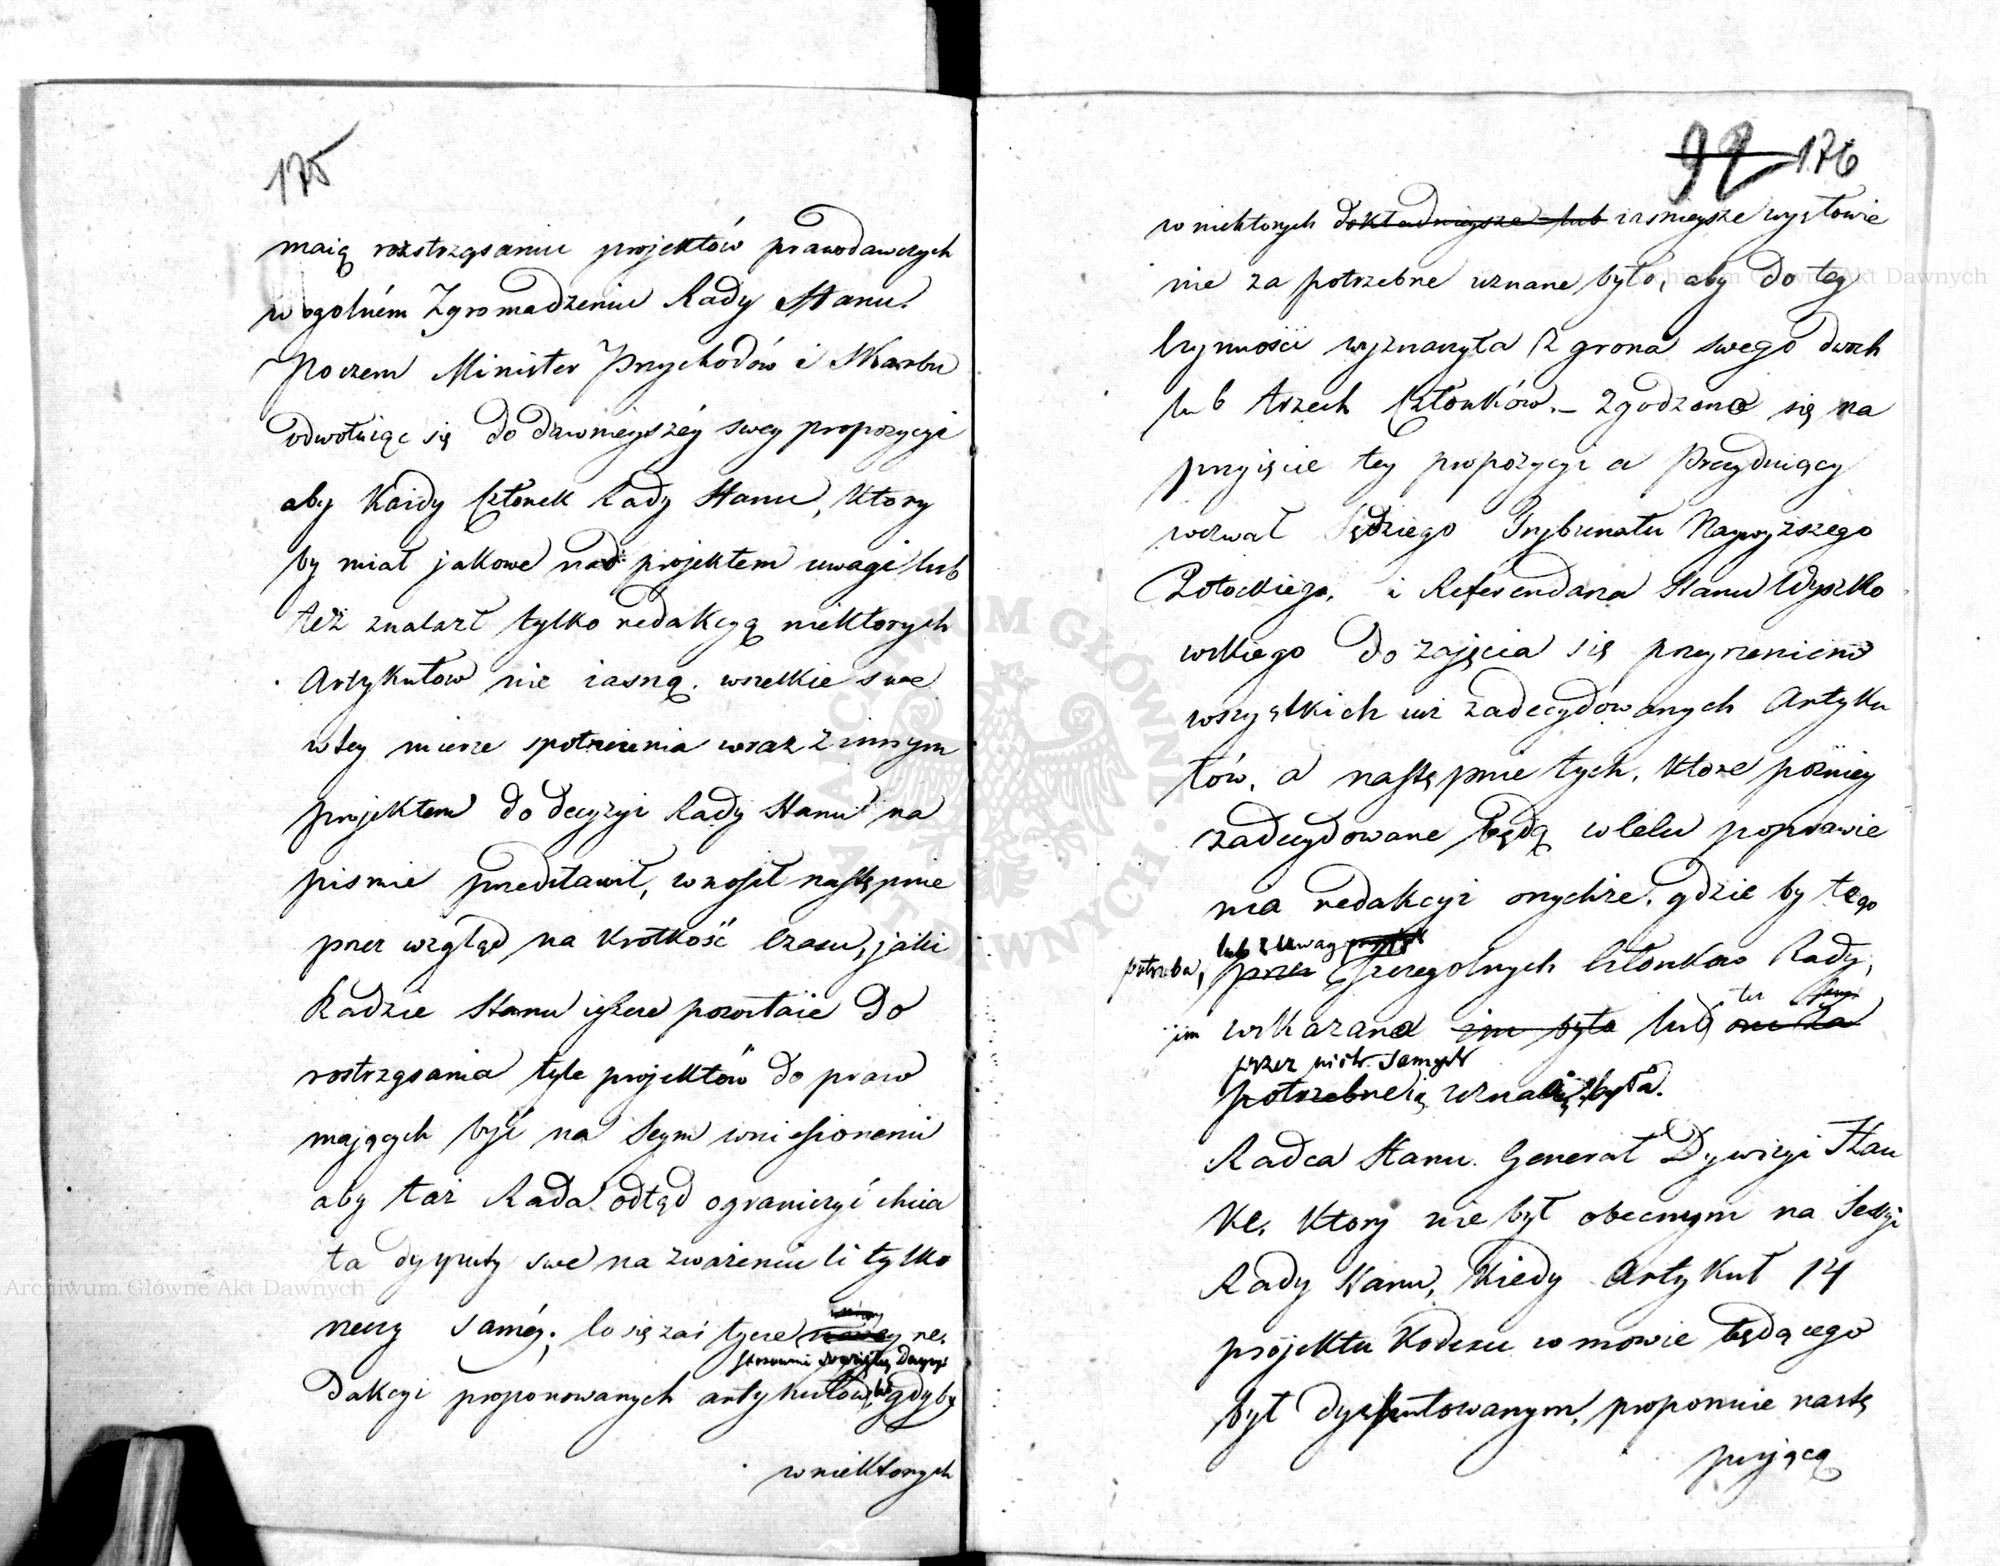 175
maią rozstrząsaniu projektów prawodawczych
w ogolném Zgromadzeniu Rady Stanu.
Poczem Minister Przychodów i Skarbu
odwołuiąc się do dawnieyszéy swey propozycyi
aby Każdy Członek Rady Stanu, Ktory
by miał jakowe nad projektem uwagi lub
też znalazł tylko redakcyą niektorych
Artykułow nie iasną, wszelkie swe
w tey mierze spostrzeżenia wraz z innym
projektem do decyzyi Rady Stanu na
pismie przedstawił, wnosił następnie
przez wzgląd na krotkość czasu, jaki
Radzie Stanu ieszcze pozostaie do
rostrząsania tyle projektów do praw
mających być na Seym wniesionemi
aby taż Rada odtąd ograniczyć chcia
ła dysputy swe na zważeniu li tylko
rzeczy saméy; co się zaś tycze nowey re,
stosownie do
dakcyi proponowanych artykułów, gdyby
w niektorych
92 176
w niektorych dokładnieysze lub iasnieysze wysłowie
nie za potrzebne uznane było, aby do tey
czynności wyznaczyła z grona swego dwoch
lub trzech Członków. – Zgodzono się na
przyięcie tey propozycyi a Prezyduiący
wezwał Sędziego Trybunału Naywyższego
Potockiego, i Referendarza Stanu Wyczecho
wskiego do zajęcia się przeyrzeniem
wszystkich już zadecydowanych Artyku
łów, a następnie tych, Ktore poźniey
zadecydowane będą w celu poprawie
nia redakcyi onychże, gdzie by tego
lub z uwag
potrzeba, przez szczegolnych Członków Rady,
im wskazana im była lub też
przez nich samych
potrzebną uznaną była.
Radca Stanu Generał Dywizyi Hau
ke, Ktory nie był obecnym na Sessyi
Rady Stanu, Kiedy Artykuł 14
projektu Kodexu w mowie będącego
był dysputowanym, proponuie nastę
pującą
Archiwum Główne Akt Dawnych
Archiwum Główne Akt Dawnych
ARCHIWUM GŁÓWNE AKT DAWNYCH